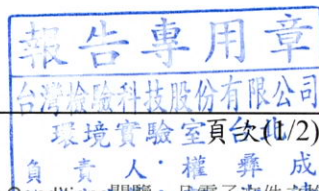 報告專用章
台灣檢驗科技股份有限公司
環境實驗室台北
頁次(1/2)
負責人:權彝成